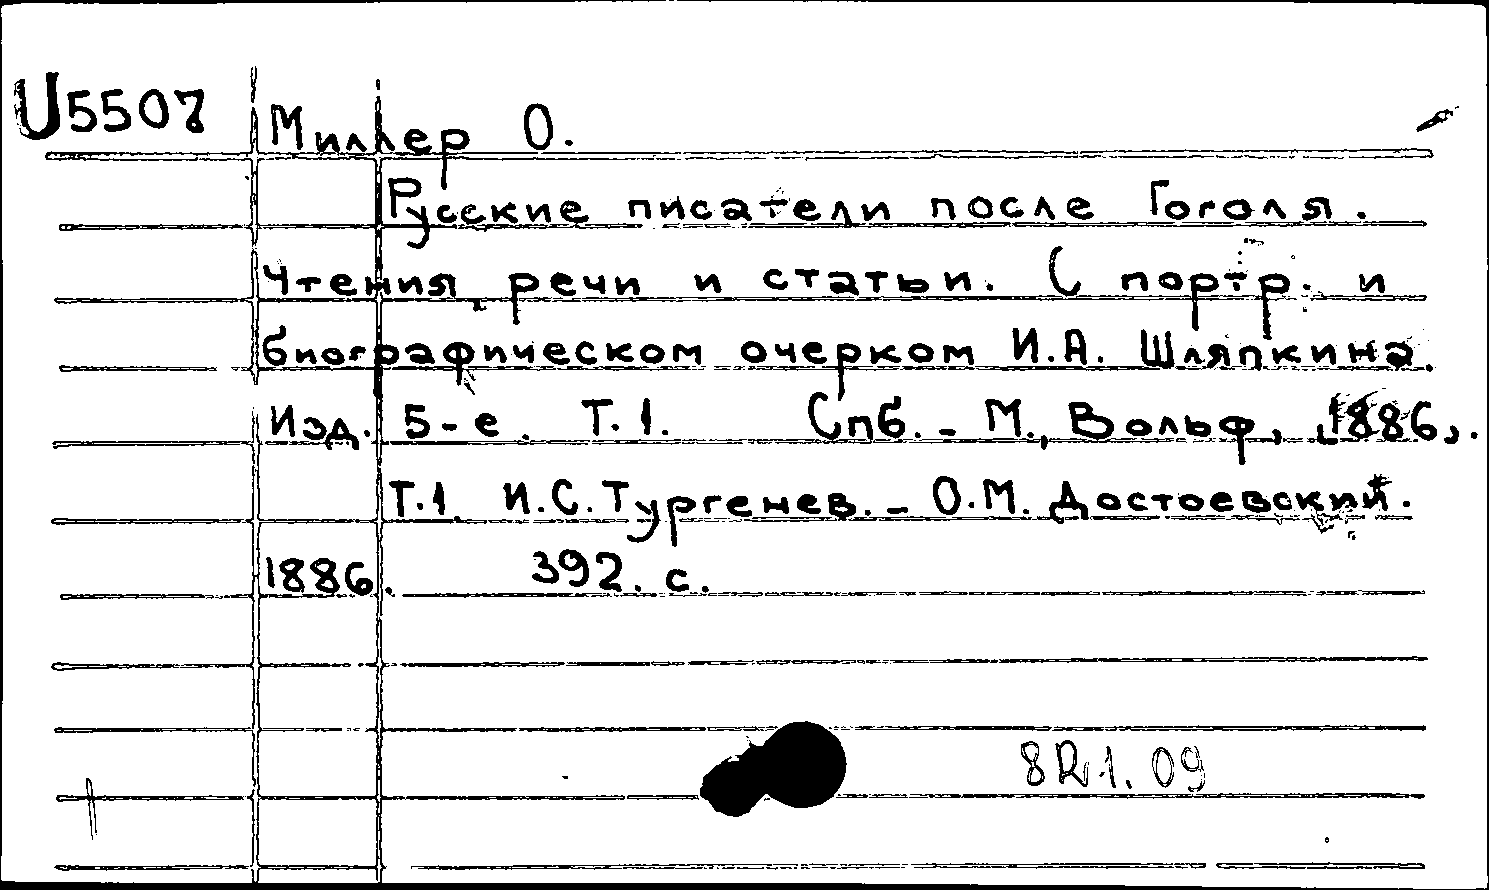 U5507 Миллер О.
Русские писатели после Гоголя.
Чтения, речи и статьи. С портр. и
биографическом очерком И.А. Шляпкина.
Изд. 5-е. Т.1. Спб. - М., Вольф, 1886,.
Т.1 И.С. Тургенев. - О.М. Достоевский.
1886. 392. с.
8R1.09